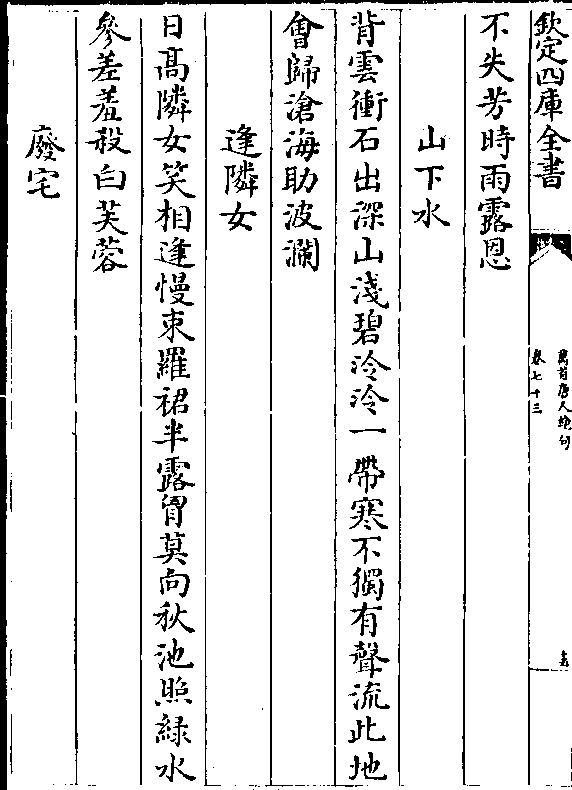 欽定四庫全書
萬首唐人絶句
卷七十三
不失芳時雨露恩
山下水
背雲衝石出深山淺碧泠泠一帶寒不獨有聲流此地
會歸滄海助波瀾
逢隣女
日髙隣女笑相逢慢束羅裙半露胷莫向秋池照緑水
參差羞殺白芙蓉
廢宅